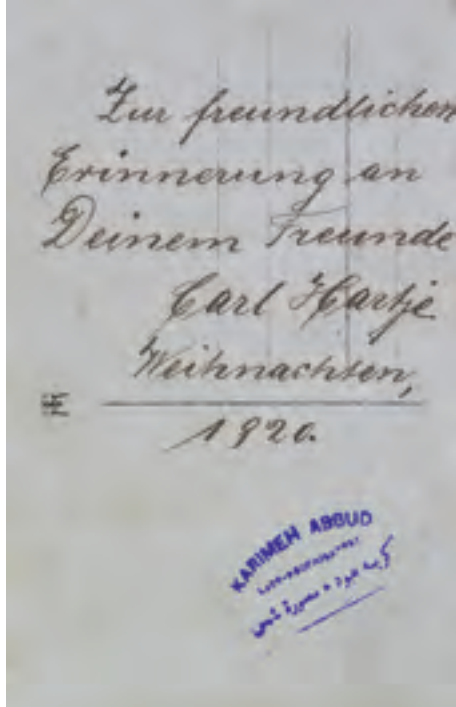 Zur freundlichen
Erinnerung an
Deinem Freunde
Carl Hartje
Weihnachten,
1920.
KARIMEH ABBUD
كريمه عبود مصورة شمس